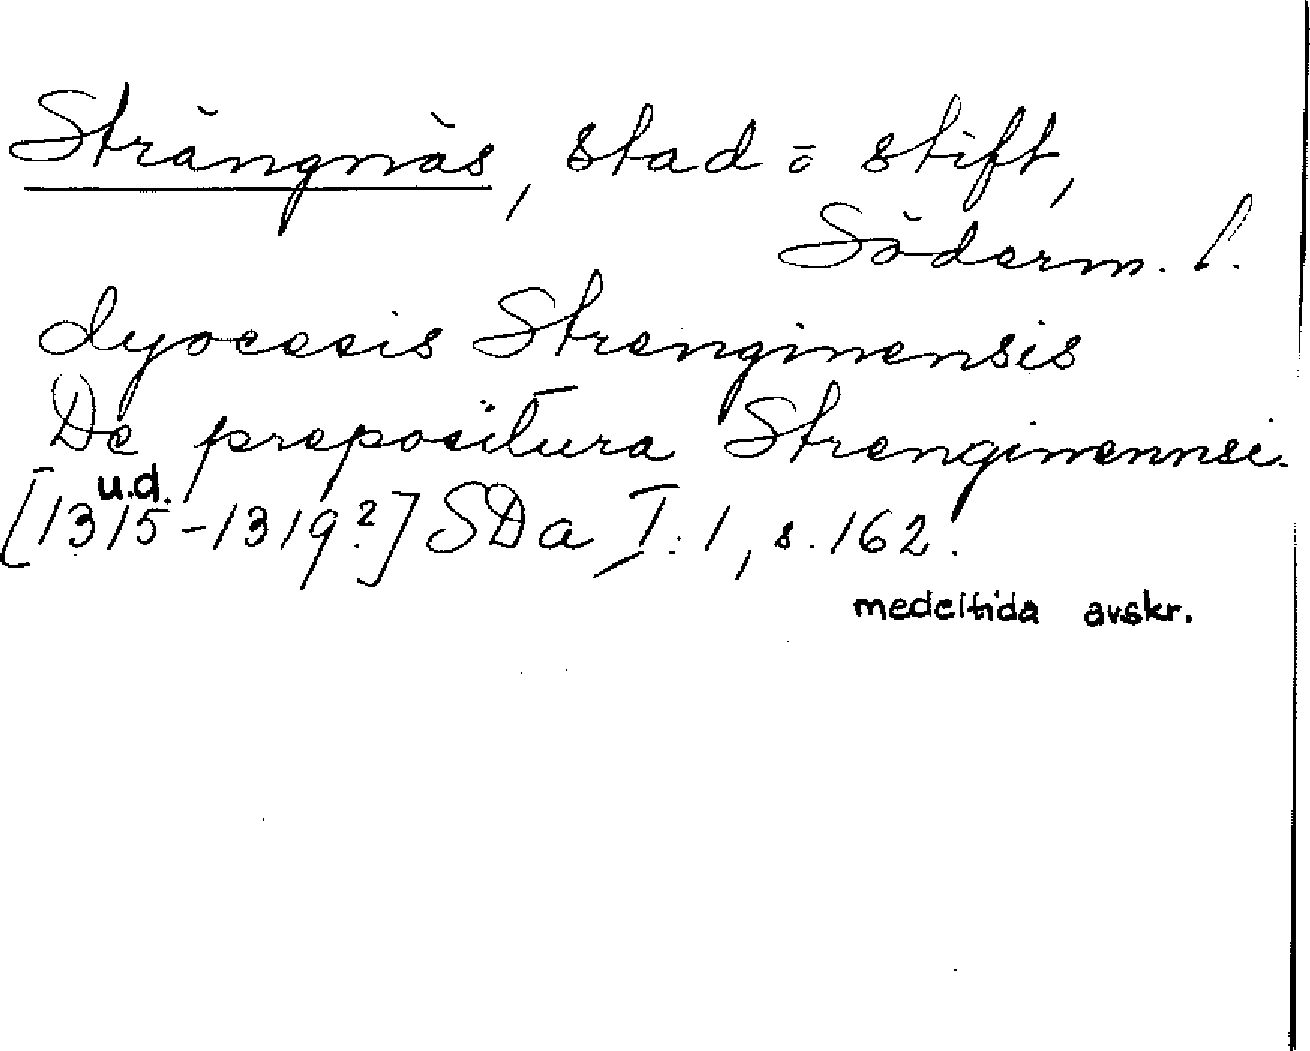 Strängnäs, stad o stift,
Söderm. l.
dyocesis Strenginensis
De prepositura Strenginennsi.
u.d.
[1315-1319?] SDa I:1, s. 162.
medeltida avskr.